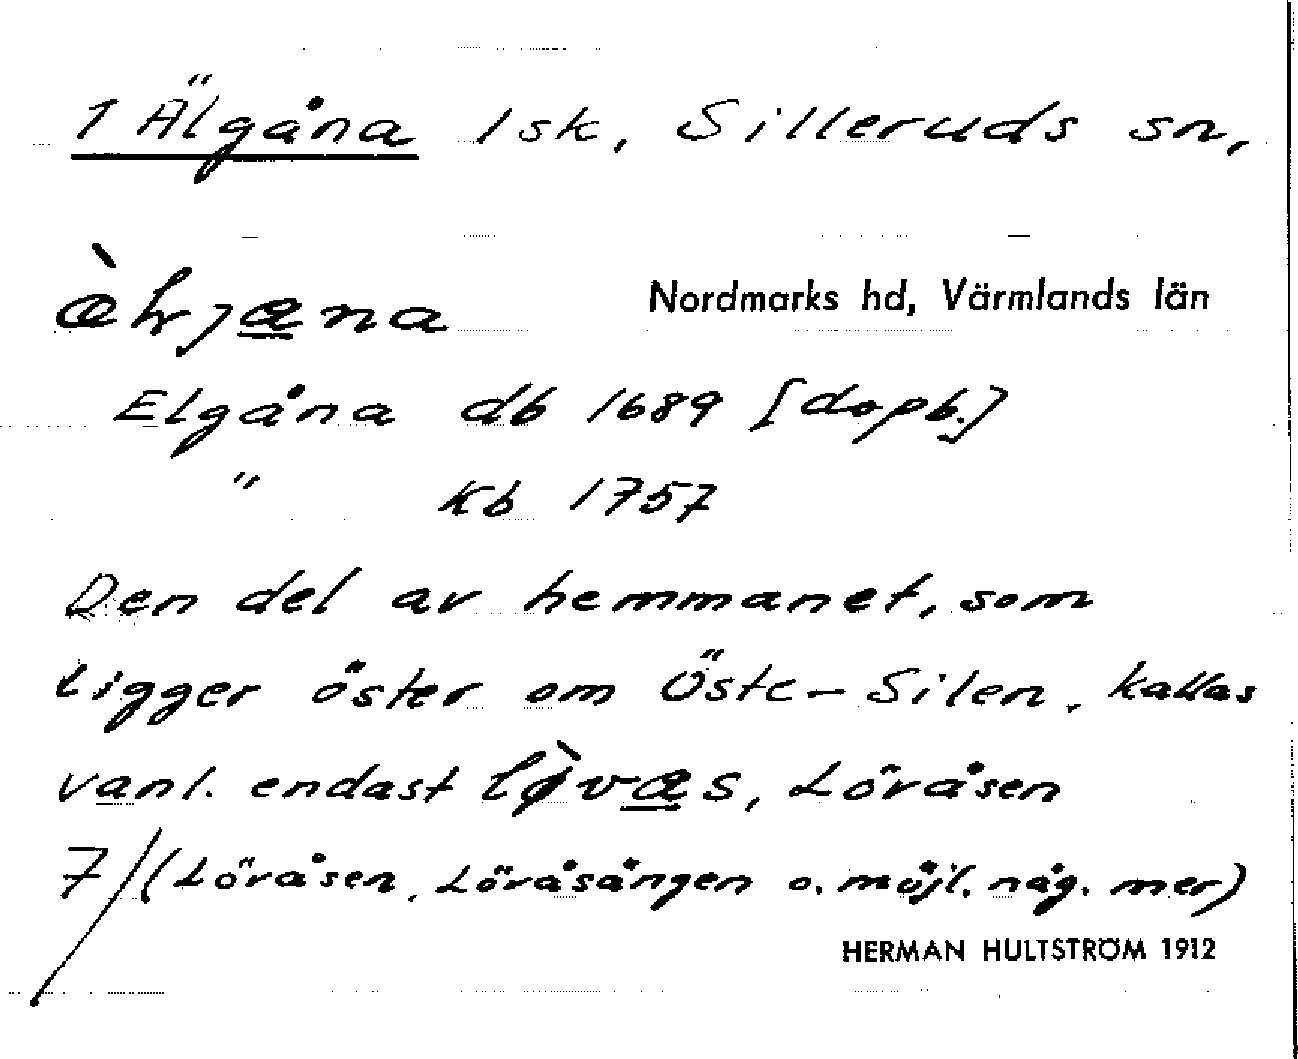 1 Älgåna 1sk, Silleruds sn,
Nordmarks hd, Värmlands län
Elgåna db 1689 [dopb.]
" kb 1757
Den del av hemmanet, som
ligger öster om Öste-Silen, kallas
vanl. endast Löråsen
7/(Löråsen, Löråsängen o. möjl. någ. mer)
HERMAN HULTSTRÖM 1912